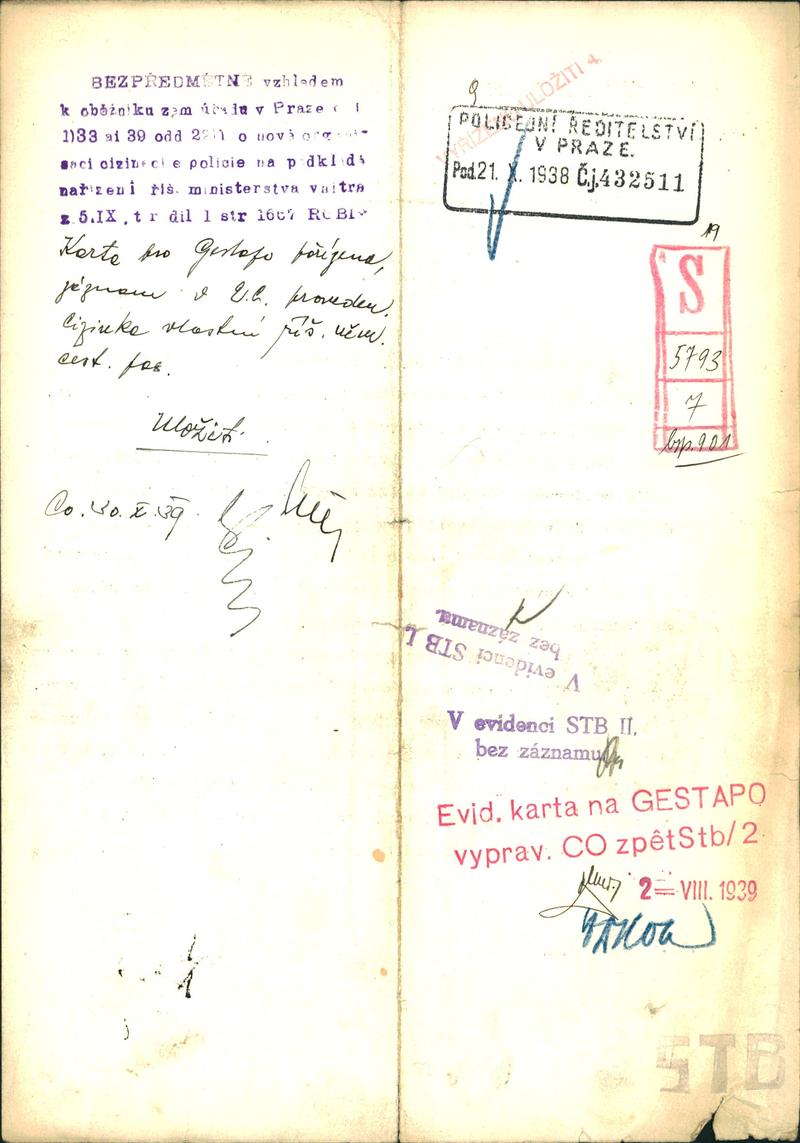 BEZPŘEDMĚTNÉ vzhledem
k oběžníku zem úřadu v Praze
1133 ai 39 odd o nové organi-
saci cizinec e policie na p dkladě
nařízení říš. ministerstva vnitra
z 5.IX. t r díl I str 1667 RGBI
Karta pro Gestapo pořízena,
záznam v proveden.
Cizinka vlastní říš. něm.
cest. pas.
Uložiti.
Co. 30. X. 39
VYŘÍZENO ULOŽITI 4.
9
POLICEJNÍ ŘEDITELSTVÍ
V PRAZE.
Pod. 21. X. 1938 Č.j. 432511
19
S
5793
7
901
V evidenci STB I.
bez záznamu.
V evidenci STB II.
bez záznamu
Evid. karta na GESTAPO
vyprav. CO zpět Stb/2
2 = VIII. 1939
STB